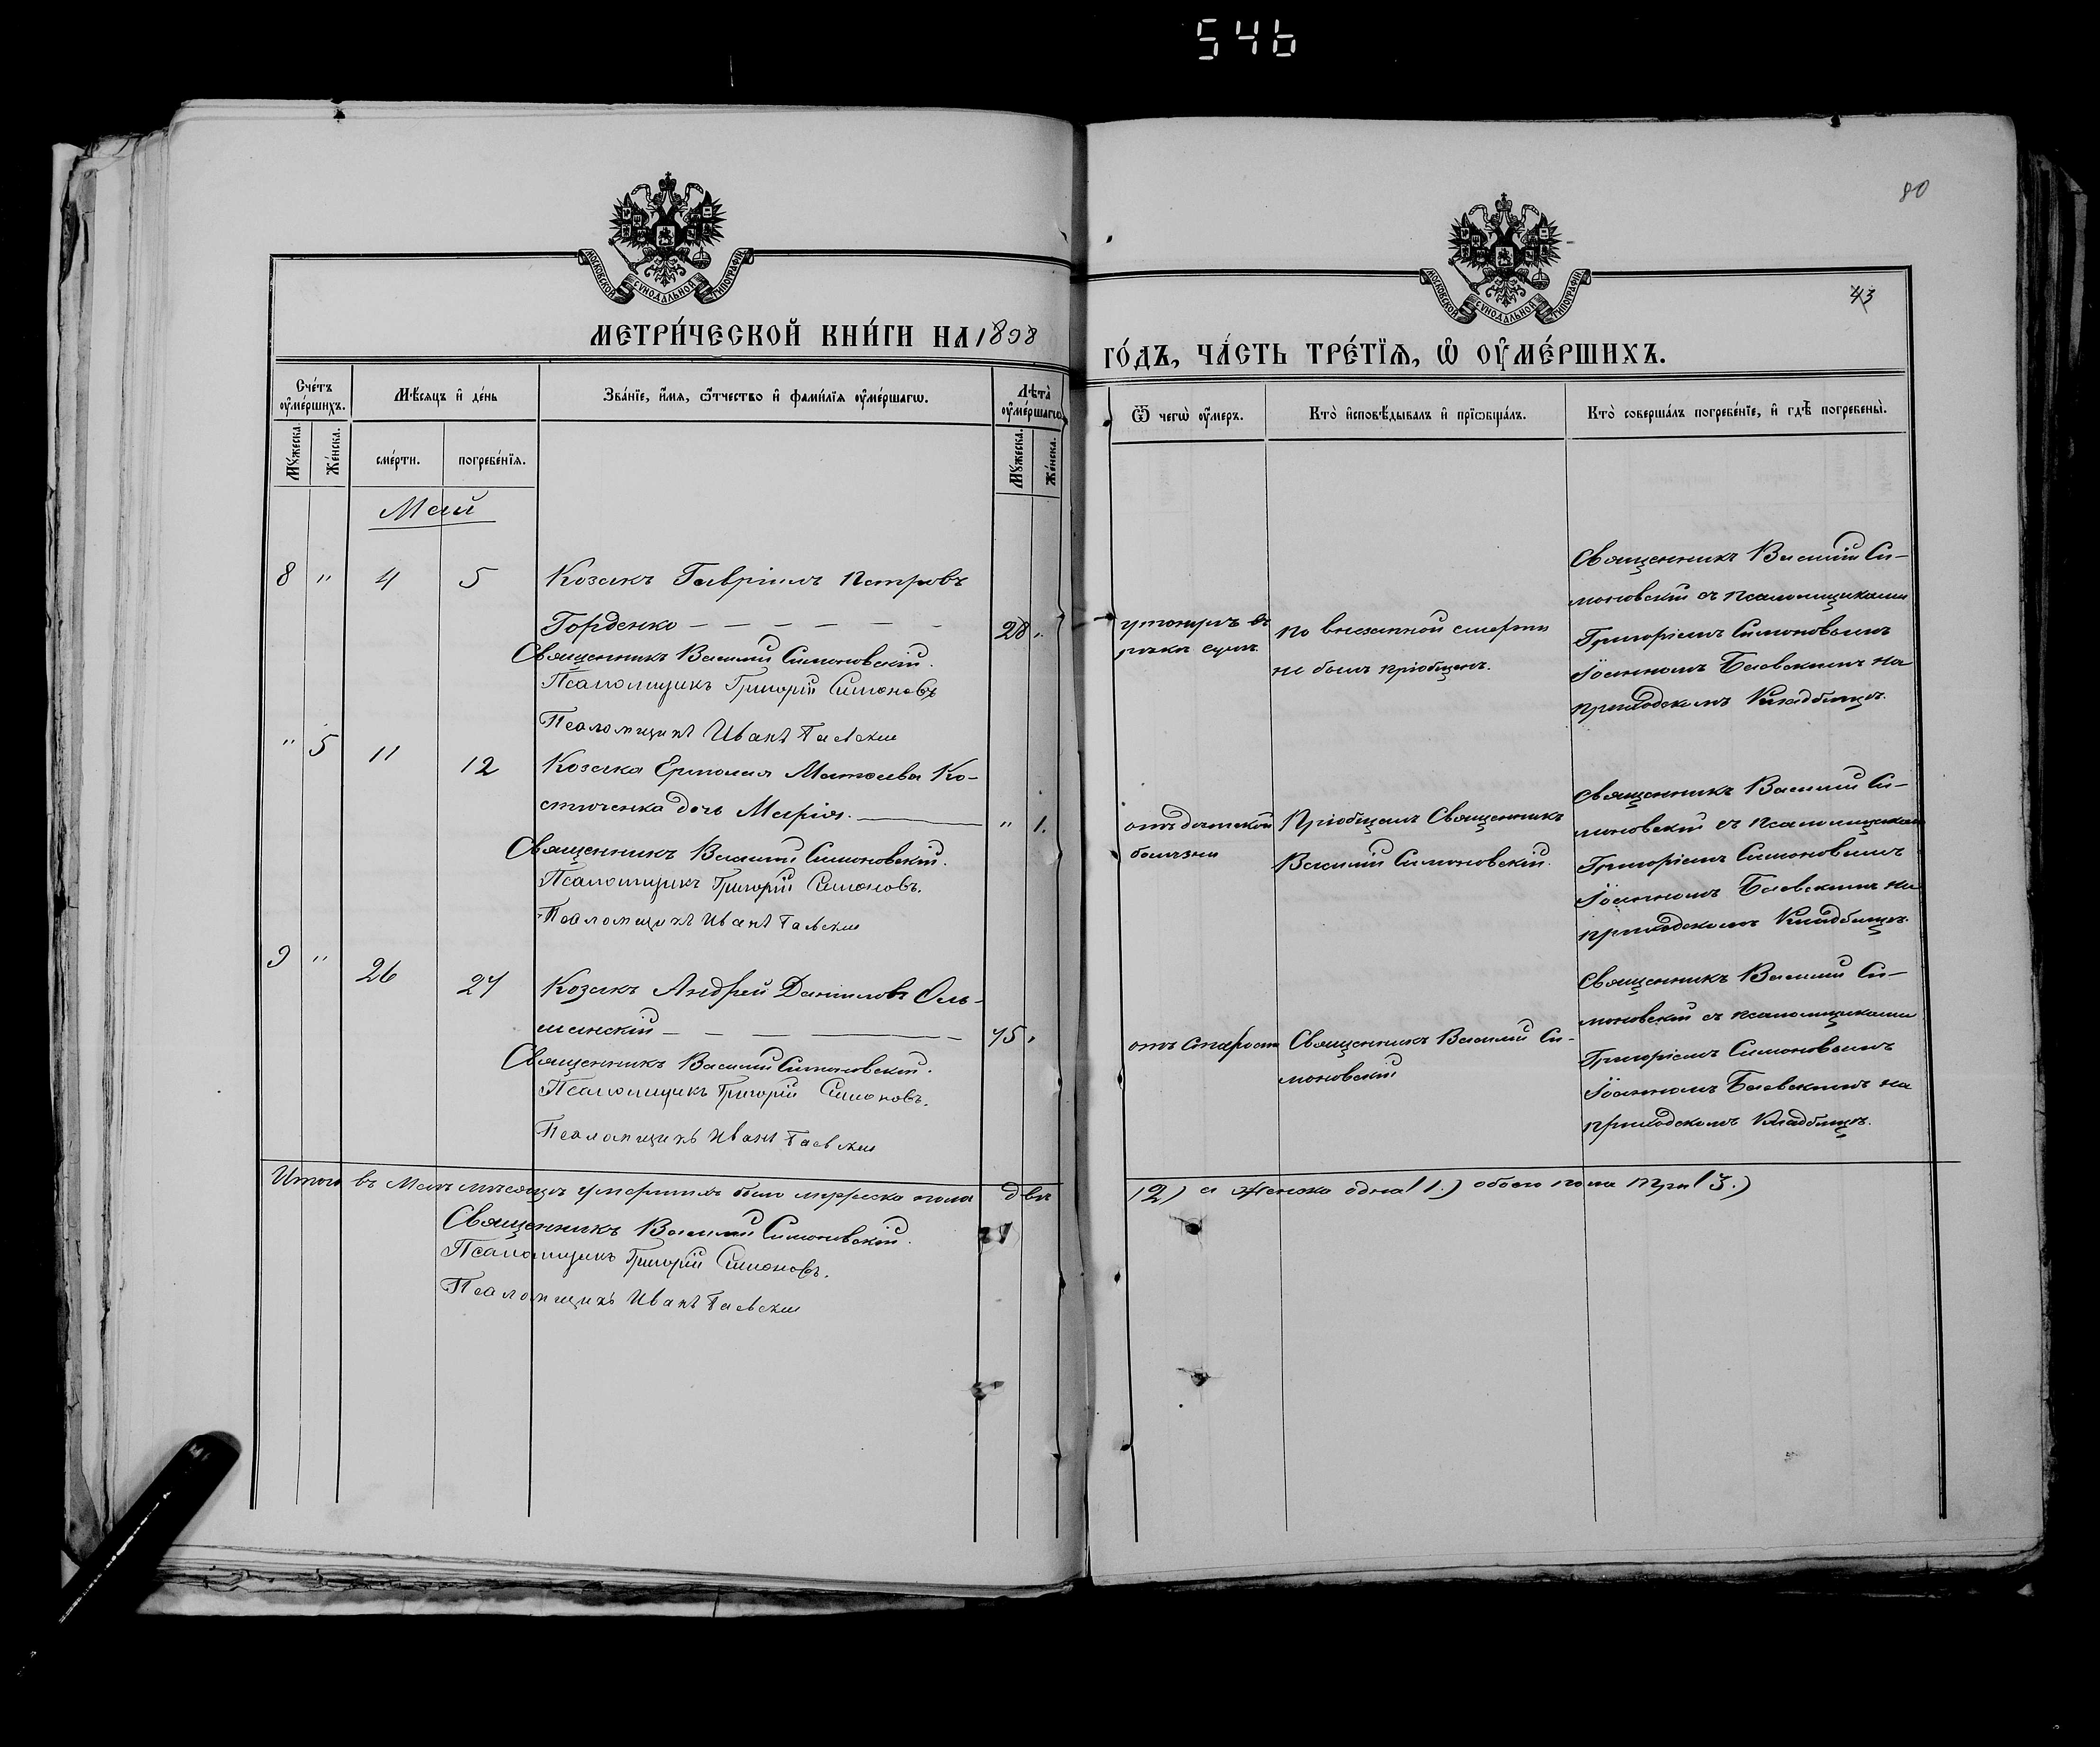 546
80
МОСКОВСКОЙ СУНОДАЛЬНОЙ ТИПОГРАФІИ
МОСКОВСКОЙ СУНОДАЛЬНОЙ ТИПОГРАФІИ
43
МЕТРИ́ЧЕСКОЙ КНИ́ГИ НА 1898
ГО́ДЪ, ЧА́СТЬ ТРЕ́ТЇѦ, Ѡ҆ ОУ҆МЕ́РШИХЪ.
Сче́тъ оу҆ме́ршихъ.
Мѣ́сяцъ и҆ де́нь
Зва́нїе, и҆́мѧ, ѻ҆́тчество и҆ фами́лїѧ оу҆ме́ршагѡ.
Лѣ́та оу҆ме́ршагѡ.
Ѿ чегѡ̀ оу҆́меръ.
Кто̀ и҆сповѣ́дывалъ и҆ прїѡбща́лъ.
Кто̀ соверша́лъ погребе́нїе, и҆ гдѣ̀ погребены̀.
Мꙋ́жеска. Же́нска.
сме́рти. погребе́нїѧ.
Мꙋ́жеска. Же́нска.
Май
8 " 4 5 Козакъ Гавріилъ Петровъ
Горденко — — — — — — 28 "
Священникъ Василій Симоновскій.
Псаломщикъ Григорій Симоновъ
Псаломщикъ Иванъ Баевскій
утонулъ въ
рѣкѣ Сулѣ
по внезапной смерти
не былъ пріобщенъ.
Священникъ Василій Си-
моновскій съ псаломщиками
Григоріемъ Симоновымъ
Іоанномъ Баевскимъ на
приходскомъ Кладбищѣ.
" 5 11 12 Козака Ермолая Матѳеева Ко-
стюченка дочь Марія. " 1.
Священникъ Василій Симоновскій.
Псаломщикъ Григорій Симоновъ.
Псаломщикъ Иванъ Баевскій
отъ дѣтской
болѣзни
Пріобщалъ Священникъ
Василій Симоновскій.
Священникъ Василій Си-
моновскій съ псаломщиками
Григоріемъ Симоновымъ
Іоанномъ Баевскимъ на
приходскомъ Кладбищѣ.
9 " 26 27 Козакъ Андрей Даниловъ Оль-
шанскій — — — — 75 "
Священникъ Василій Симоновскій.
Псаломщикъ Григорій Симоновъ.
Псаломщикъ Иванъ Баевскій
отъ старости
Священникъ Василій Си-
моновскій
Священникъ Василій Си-
моновскій съ псаломщиками
Григоріемъ Симоновымъ
Іоанномъ Баевскимъ на
приходскомъ Кладбищѣ.
Итого въ Маѣ мѣсяцѣ умершихъ было мужеска пола два (2) а женска одна (1.) обоего пола три (3.)
Священникъ Василій Симоновскій.
Псаломщикъ Григорій Симоновъ.
Псаломщикъ Иванъ Баевскій